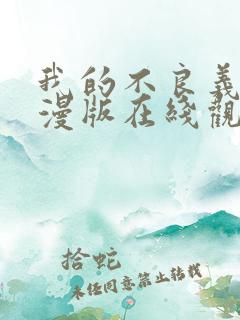 我的不良義
漫版在綫觀
拾蛇
未经同意禁止转载